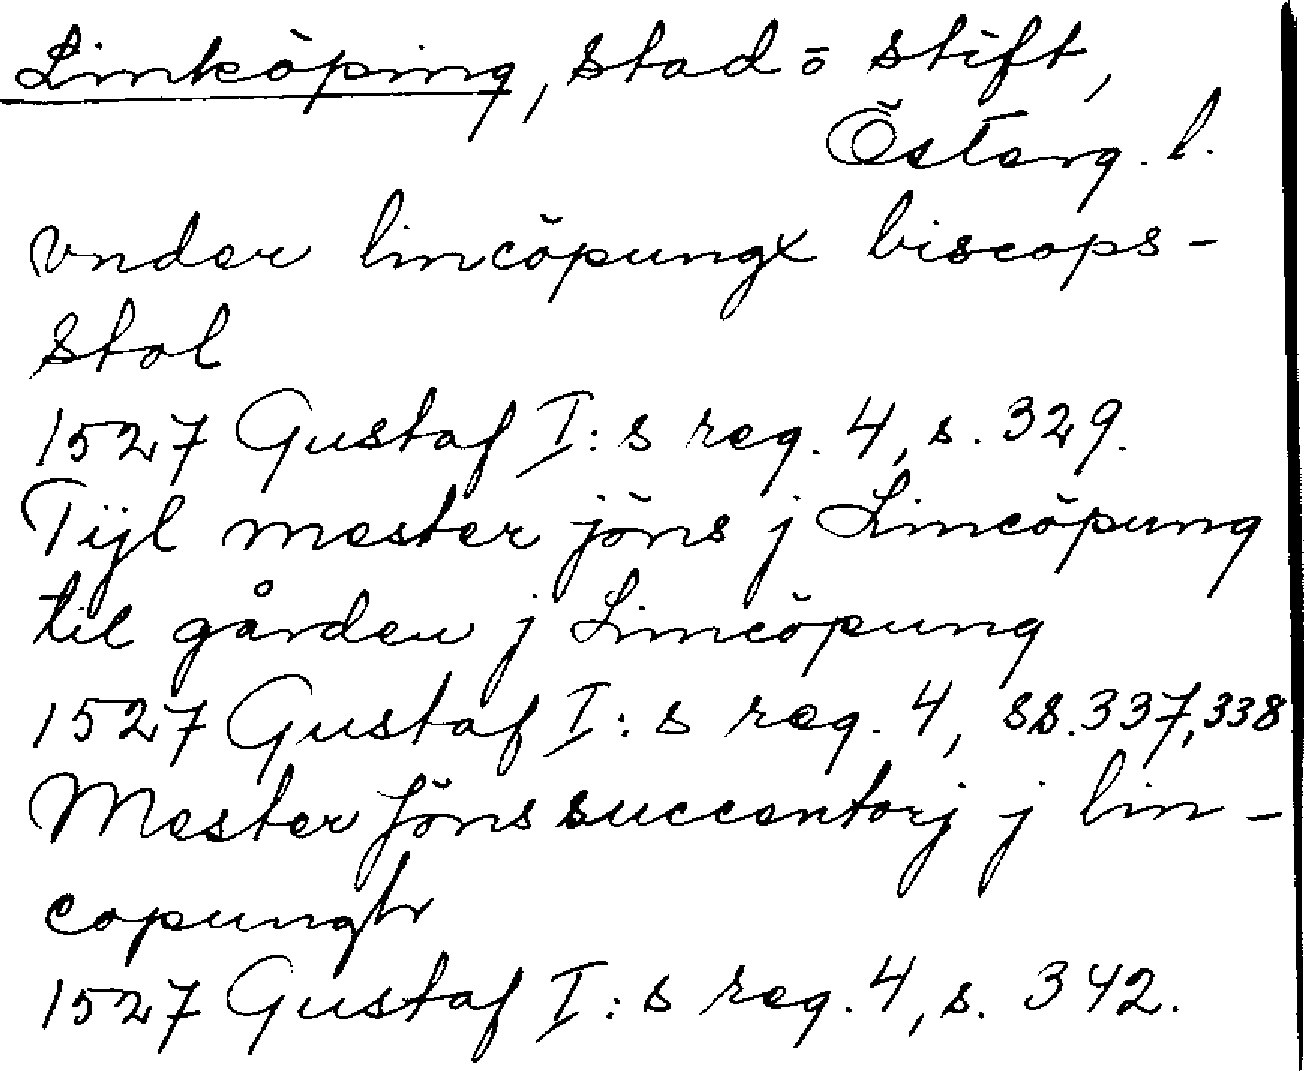 Linköping, stad o stift,
Österg. l.
vnder lincöpungx biscops-
stol
1527 Gustaf I:s reg. 4, s. 329.
Tijl mester jöns j Lincöpung
til gården j Lincöpung
1527 Gustaf I:s reg. 4, ss. 337, 338
Mester Jöns succentorj j lin-
copungh
1527 Gustaf I:s reg. 4, s. 342.